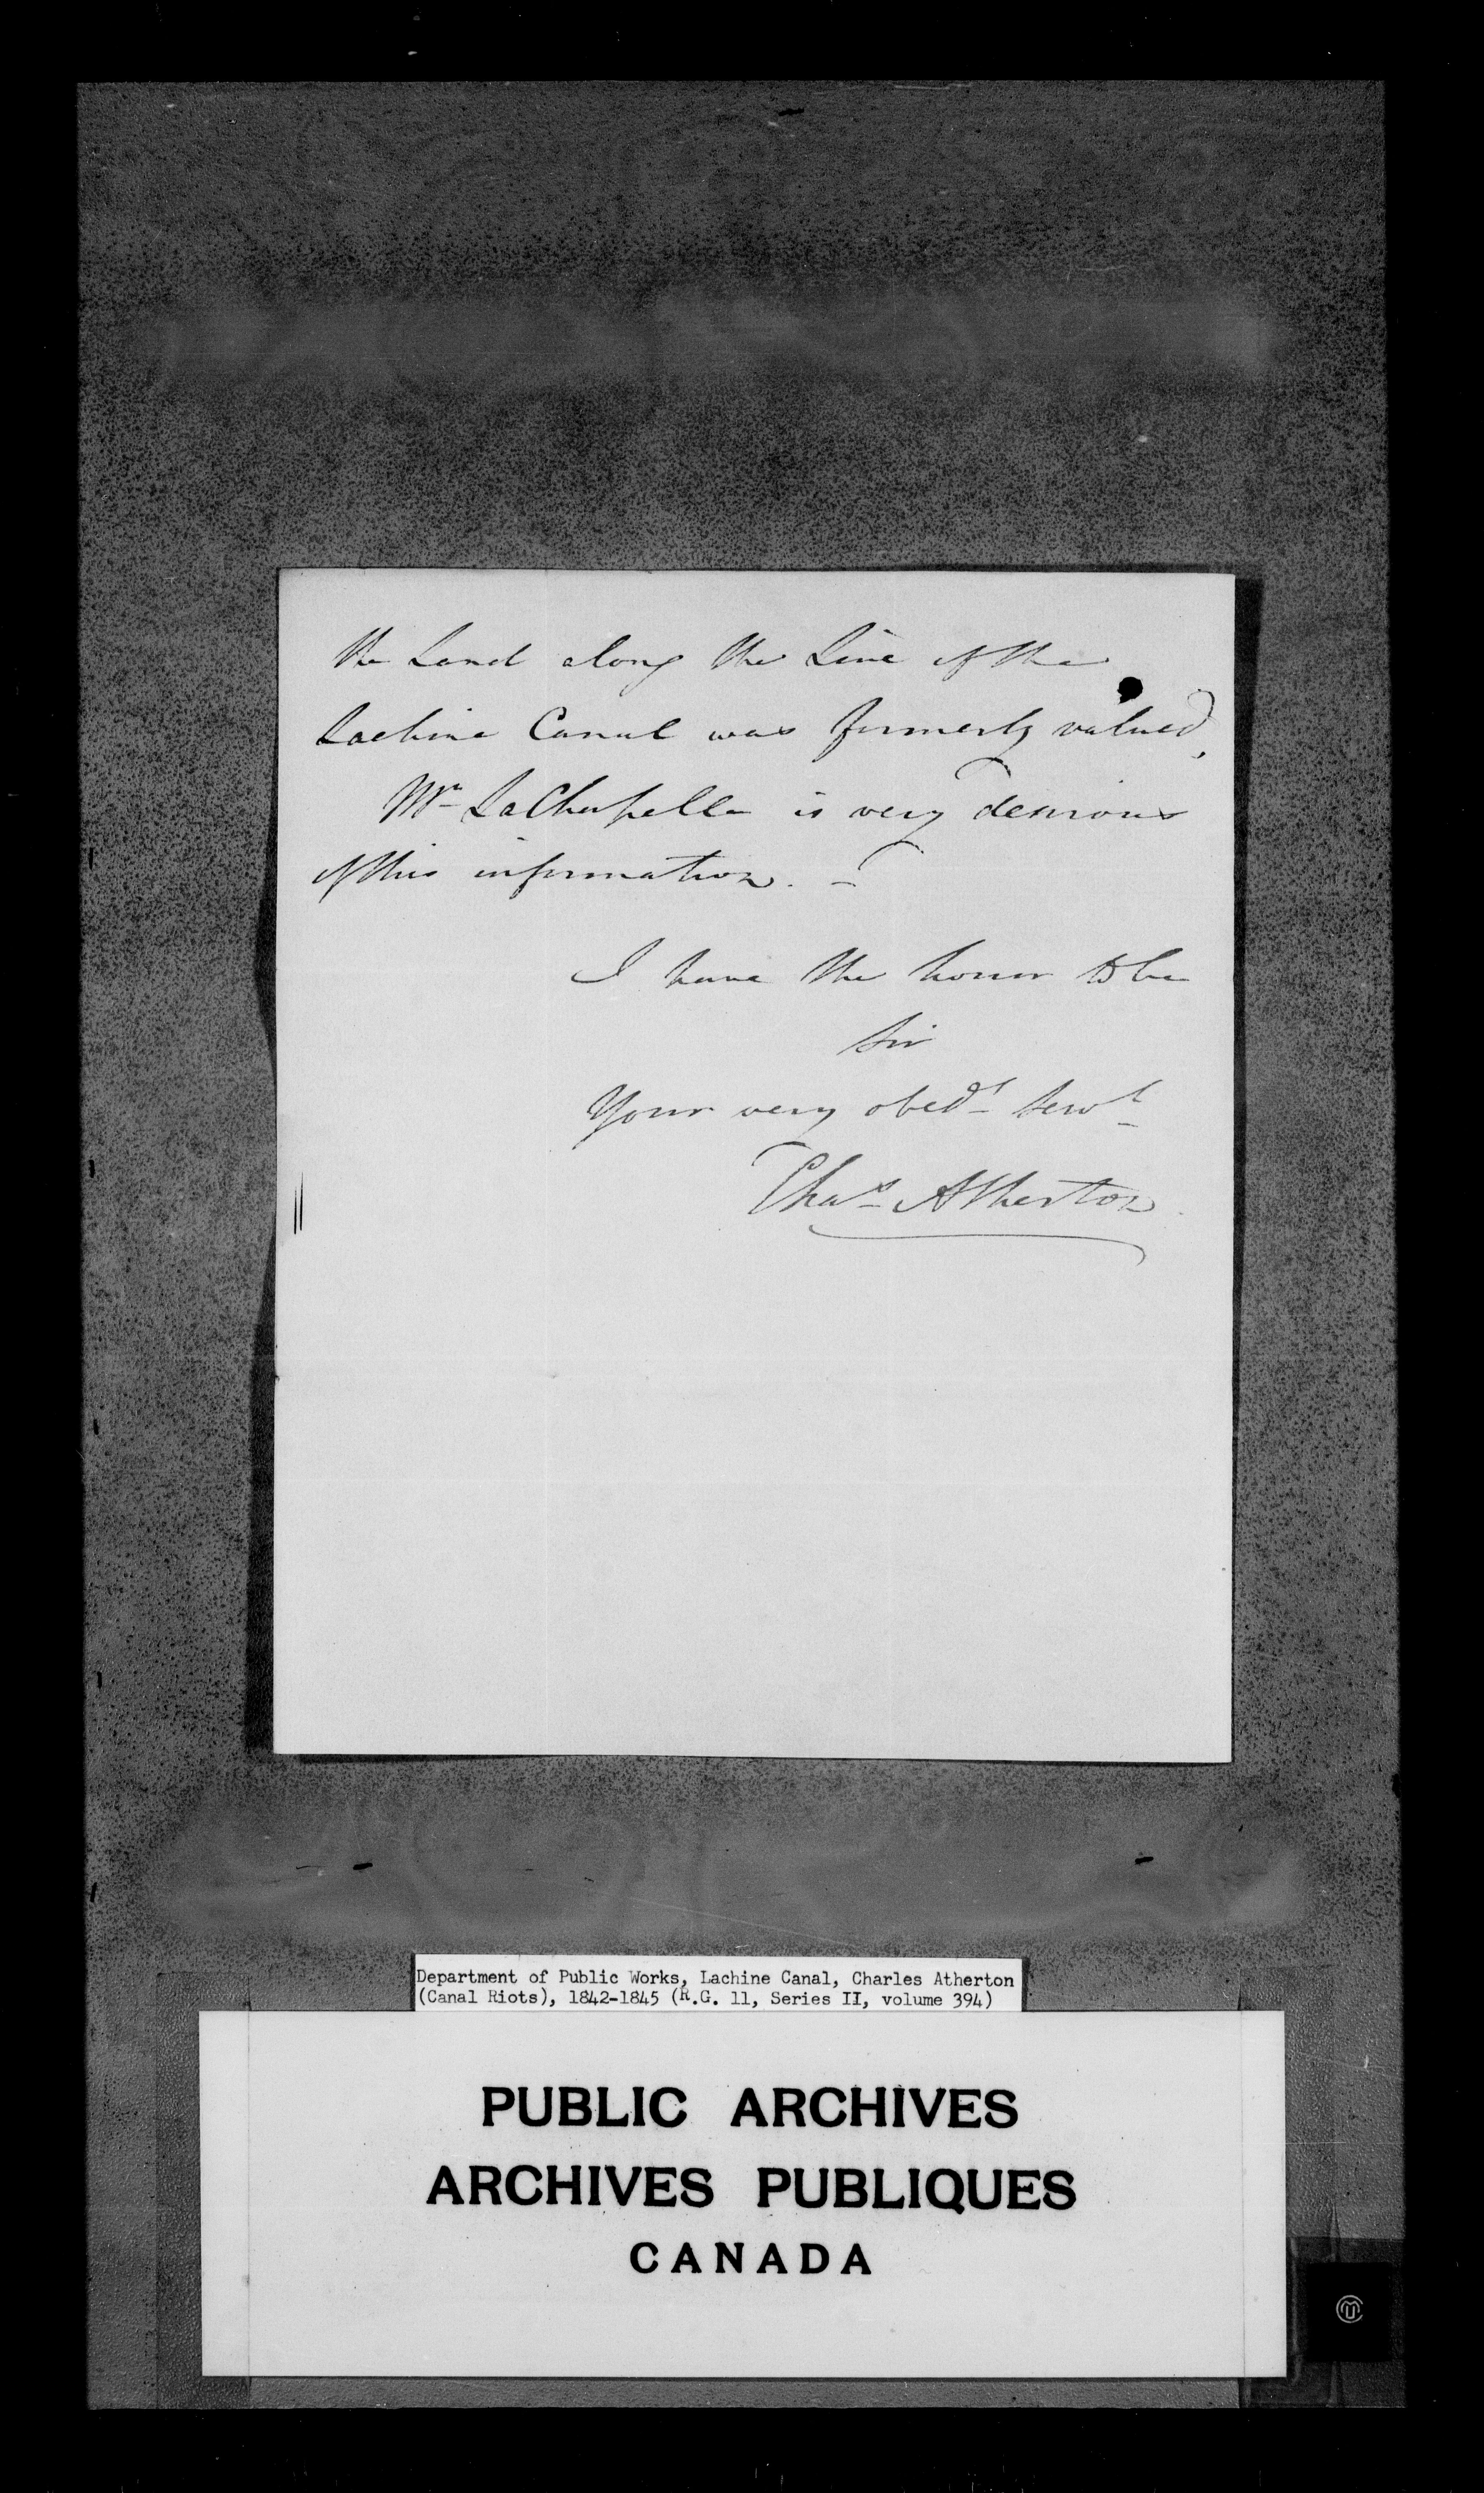 the Land along the Line of the
Lachine Canal was formerly valued,
Mr LaChapelle is very desirous
of this information. -
I have the honor to be
Sir
Your very obedt Servt
Chas Atherton
Department of Public Works, Lachine Canal, Charles Atherton
(Canal Riots), 1842-1845 (R.G. 11, Series II, volume 394)
PUBLIC ARCHIVES
ARCHIVES PUBLIQUES
CANADA